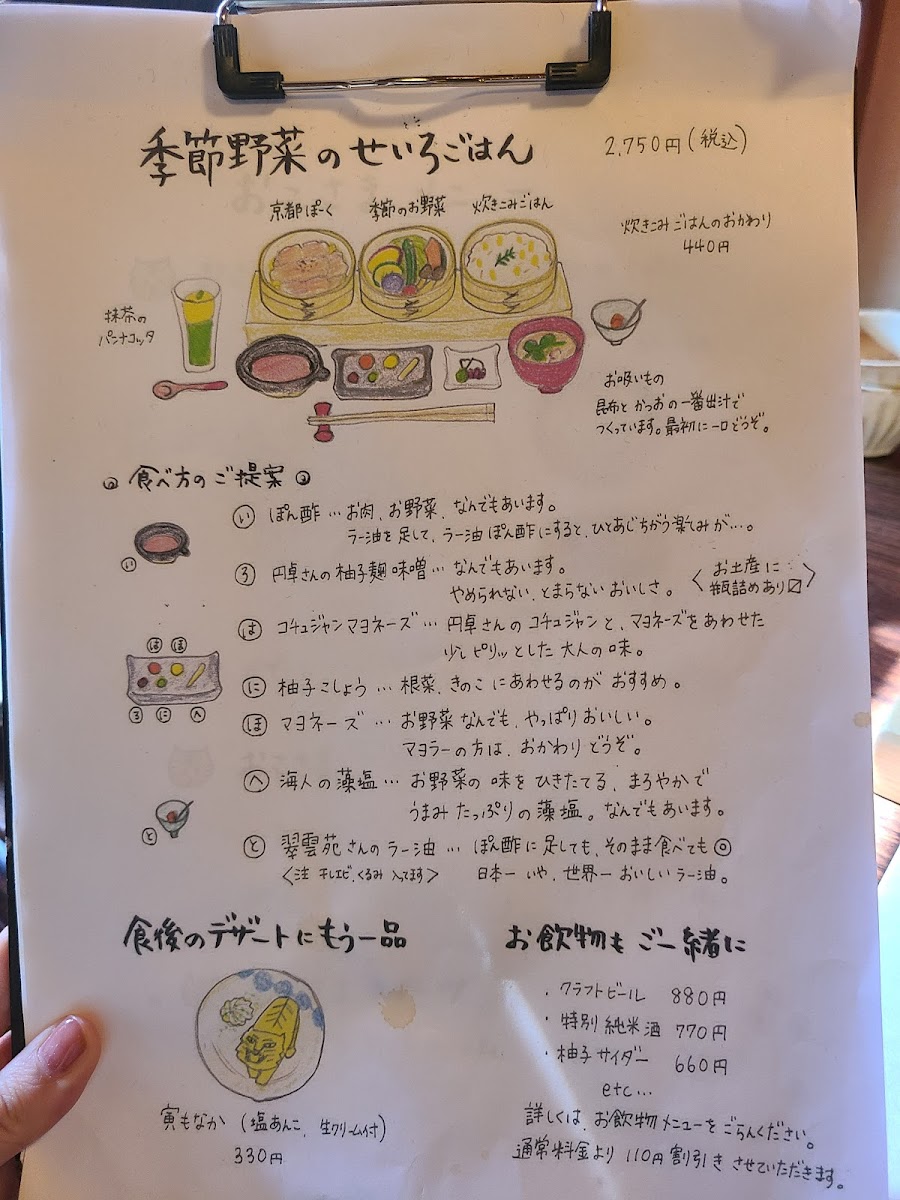 季節野菜のせいろごはん 2,750円(税込)
京都ぽーく 季節のお野菜 炊きこみごはん
炊きこみごはんのおかわり
440円
抹茶の
パンナコッタ
お吸いもの
昆布とかつおの一番出汁で
つくっています。最初に一口どうぞ。
食べ方のご提案
い ぽん酢…お肉、お野菜、なんでもあいます。
ラー油を足して、ラー油ぽん酢にすると、ひとあじちがう楽しみが…。
い
ろ 円卓さんの柚子麹味噌…なんでもあいます。
やめられない、とまらないおいしさ。
〈お土産に
瓶詰めあり〼〉
は コチュジャンマヨネーズ…円卓さんのコチュジャンと、マヨネーズをあわせた
少しピリッとした大人の味。
は ほ
に 柚子こしょう…根菜、きのこにあわせるのがおすすめ。
ろ に へ
ほ マヨネーズ…お野菜なんでも、やっぱりおいしい。
マヨラーの方は、おかわりどうぞ。
へ 海人の藻塩…お野菜の味をひきたてる、まろやかで
うまみたっぷりの藻塩。なんでもあいます。
と
と 翠雲苑さんのラー油…ぽん酢に足しても、そのまま食べても◎
〈注 干しエビ、くるみ入ってます〉 日本一いや、世界一おいしいラー油。
食後のデザートにもう一品
寅もなか(塩あんこ、生クリーム付)
330円
お飲物もご一緒に
・クラフトビール 880円
・特別純米酒 770円
・柚子サイダー 660円
etc…
詳しくは、お飲物メニューをごらんください。
通常料金より110円割引きさせていただきます。